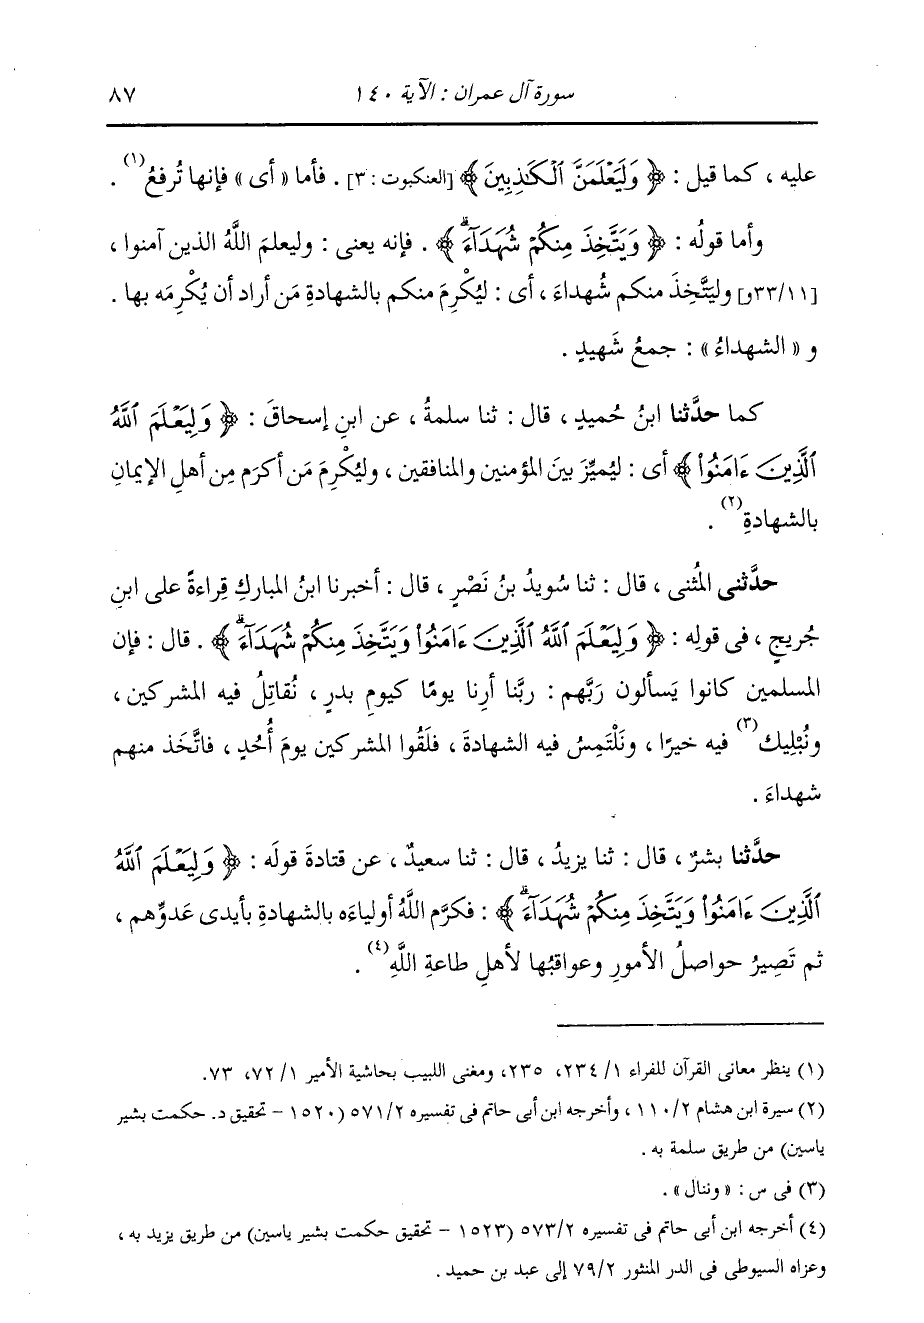 سورة آل عمران : الآية ١٤٠ ٨٧
عليه ، كما قيل : ﴿ وَلَيَعْلَمَنَّ ٱلْكَٰذِبِينَ ﴾ [العنكبوت : ٣] . فأما « أى » فإنها تُرفعُ(١) .
وأما قولُه : ﴿ وَيَتَّخِذَ مِنكُمْ شُهَدَآءَ ۗ ﴾ . فإنه يعنى : وليعلمَ اللَّهُ الذين آمنوا ،
[٣٣/١١و] وليتَّخِذَ منكم شُهداءَ ، أى : ليُكْرِمَ منكم بالشهادةِ مَن أراد أن يُكْرِمَه بها .
و « الشهداءُ » : جمعُ شَهيدٍ .
كما حدَّثنا ابنُ حُميدٍ ، قال : ثنا سلمةُ ، عن ابنِ إسحاقَ : ﴿ وَلِيَعْلَمَ ٱللَّهُ
ٱلَّذِينَ ءَامَنُوا۟ ﴾ أى : ليُميِّزَ بينَ المؤمنين والمنافقين ، وليُكْرِمَ مَن أكرَم مِن أهلِ الإيمانِ
بالشهادةِ(٢) .
حدَّثنى المُثنى ، قال : ثنا سُويدُ بنُ نَصْرٍ ، قال : أخبرنا ابنُ المباركِ قِراءةً على ابنِ
جُريجٍ ، فى قولِه : ﴿ وَلِيَعْلَمَ ٱللَّهُ ٱلَّذِينَ ءَامَنُوا۟ وَيَتَّخِذَ مِنكُمْ شُهَدَآءَ ۗ ﴾ . قال : فإن
المسلمين كانوا يَسألون رَبَّهم : ربَّنا أرِنا يومًا كيومِ بدرٍ ، نُقاتِلُ فيه المشركين ،
ونُبْلِيك(٣) فيه خيرًا ، ونَلْتَمِسُ فيه الشهادةَ ، فلَقُوا المشركين يومَ أُحُدٍ ، فاتَّخَذ منهم
شهداءَ .
حدَّثنا بشرٌ ، قال : ثنا يزيدُ ، قال : ثنا سعيدٌ ، عن قتادةَ قولَه : ﴿ وَلِيَعْلَمَ ٱللَّهُ
ٱلَّذِينَ ءَامَنُوا۟ وَيَتَّخِذَ مِنكُمْ شُهَدَآءَ ۗ ﴾ : فكرَّم اللَّهُ أولياءَه بالشهادةِ بأيدى عَدوِّهم ،
ثم تَصِيرُ حواصلُ الأمورِ وعواقبُها لأهلِ طاعةِ اللَّهِ(٤) .
(١) ينظر معانى القرآن للفراء ١/ ٢٣٤، ٢٣٥، ومغنى اللبيب بحاشية الأمير ١/ ٧٢، ٧٣.
(٢) سيرة ابن هشام ١١٠/٢ ، وأخرجه ابن أبى حاتم فى تفسيره ٥٧١/٢ (١٥٢٠ – تحقيق د. حكمت بشير
ياسين) من طريق سلمة به .
(٣) فى س : « وننال » .
(٤) أخرجه ابن أبى حاتم فى تفسيره ٥٧٣/٢ (١٥٢٣ – تحقيق حكمت بشير ياسين) من طريق يزيد به ،
وعزاه السيوطى فى الدر المنثور ٧٩/٢ إلى عبد بن حميد .